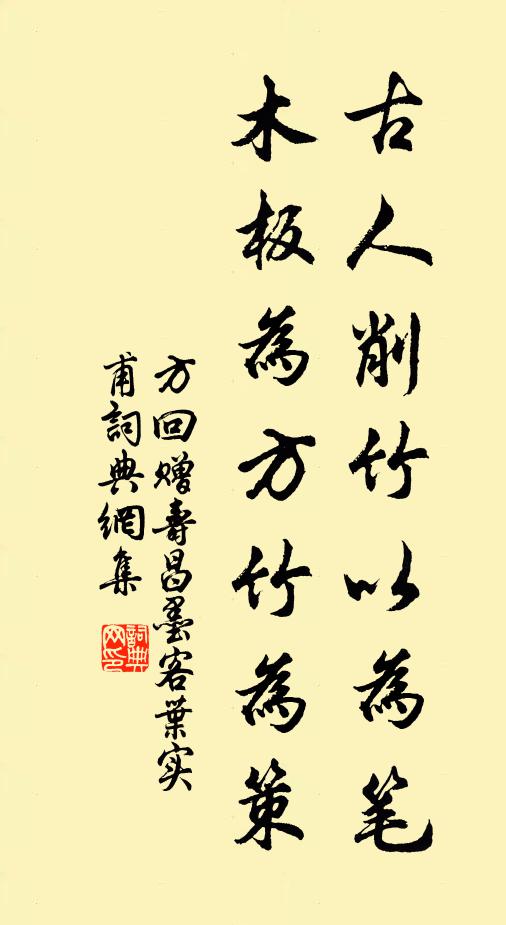 古人削竹以為笔
木板為方竹為策
方回赠壽昌墨客葉实
甫詞典網集
詞典网印